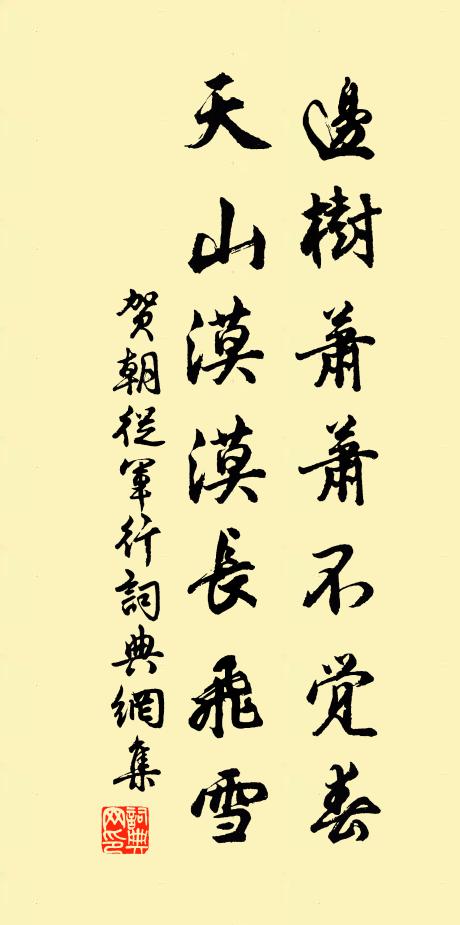 邊樹蕭蕭不觉春
天山漠漠長飛雪
贺朝從軍行詞典網集
詞典网印